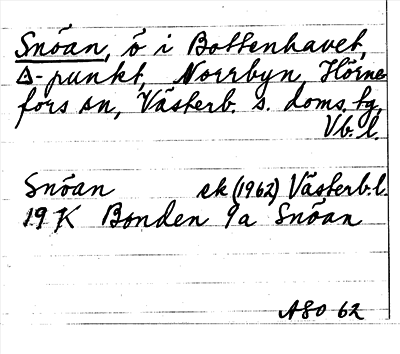 Snöan, ö i Bottenhavet,
∆-punkt, Norrbyn, Hörne
fors sn, Västerb. s. doms. tg,
Vb. l.
Snöan ek (1962) Västerb. l.
19 K Bonden 9a Snöan
ASO 62